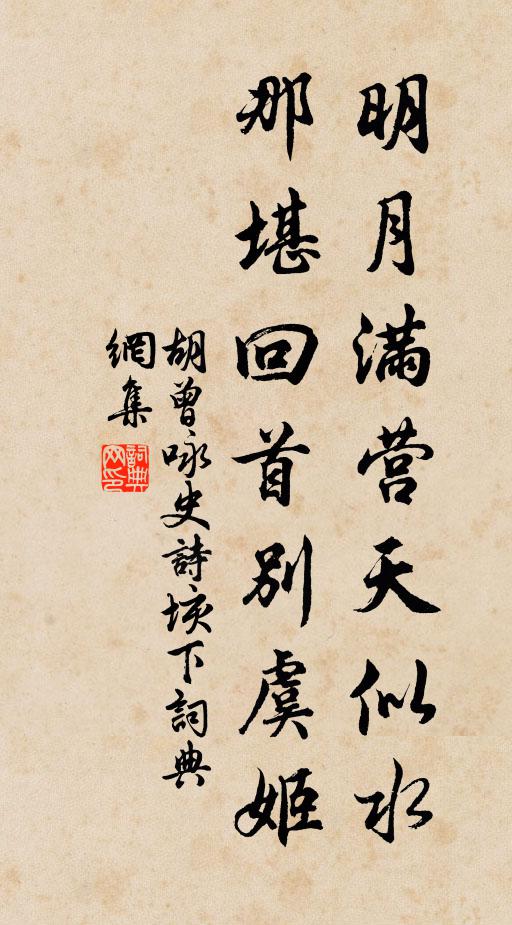 明月滿营天似水
那堪回首别虞姬
胡曾咏史詩垓下詞典
網集
詞典网印